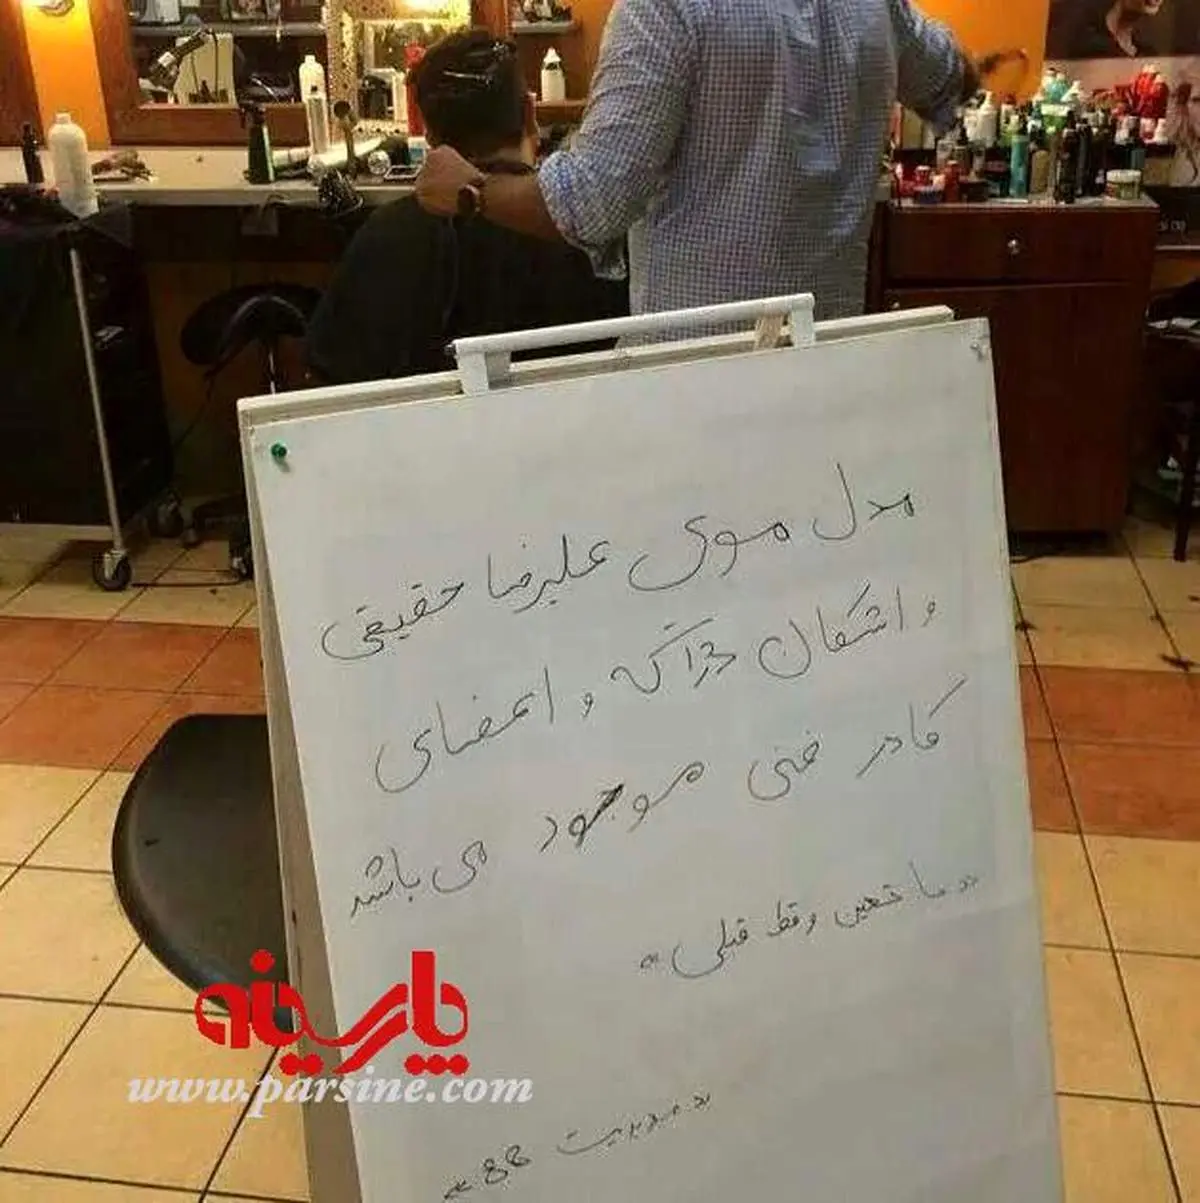 مدل موی علیرضا حقیقی
و اشکان دژاگه و اعضای
کادر فنی موجود می باشد
«با تعیین وقت قبلی»
«مدیریت
پارسینه
www.parsine.com